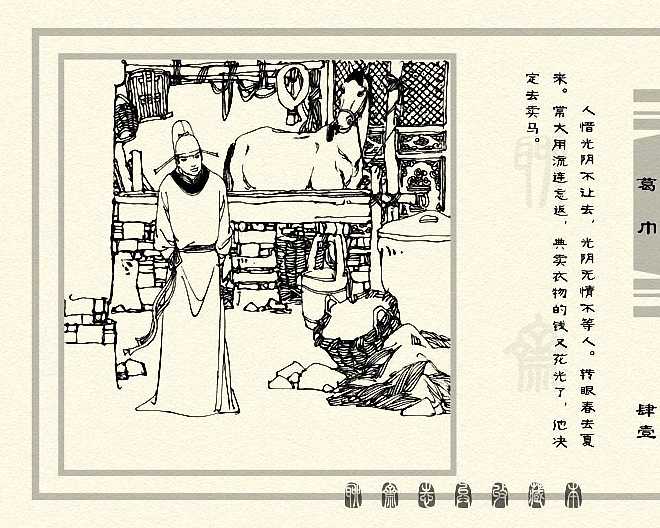 人惜光阴不让去，光阴无情不等人。转眼春去夏
来。常大用流连忘返，典卖衣物的钱又花光了，他决
定去卖马。
葛巾
肆壹
聊斋志异收藏本
聊
斋